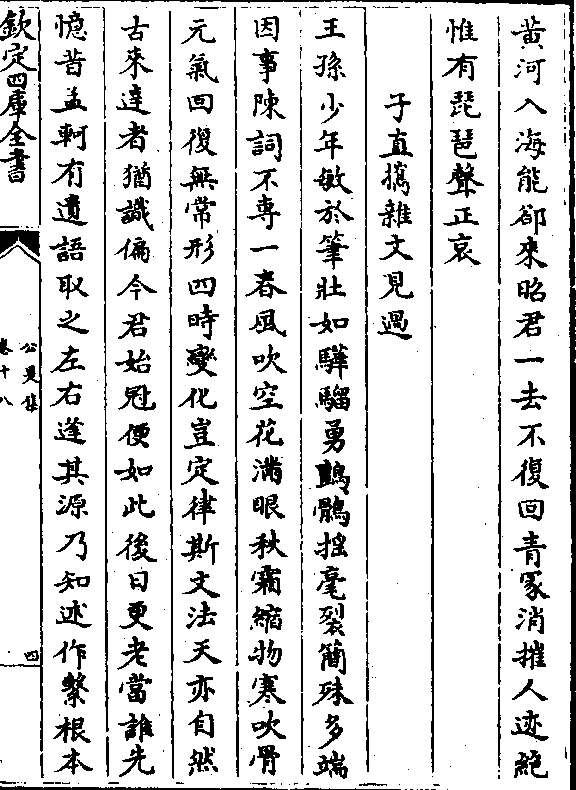 黃河入海能郤來昭君一去不復回青冢消摧人迹絶
惟有琵琶聲正哀
子直攜雜文見過
王孫少年敏於筆壯如驊騮勇鸇鶻揺毫裂簡殊多端
因事陳詞不專一春風吹空花滿眼秋霜縮物寒吹骨
元氣回復無常形四時變化豈定律斯文法天亦自然
古來達者猶識偏今君始冠便如此後日更老當誰先
憶昔孟軻有遺語取之左右逢其源乃知述作繫根本
欽定四庫全書
公是集
卷十八
四